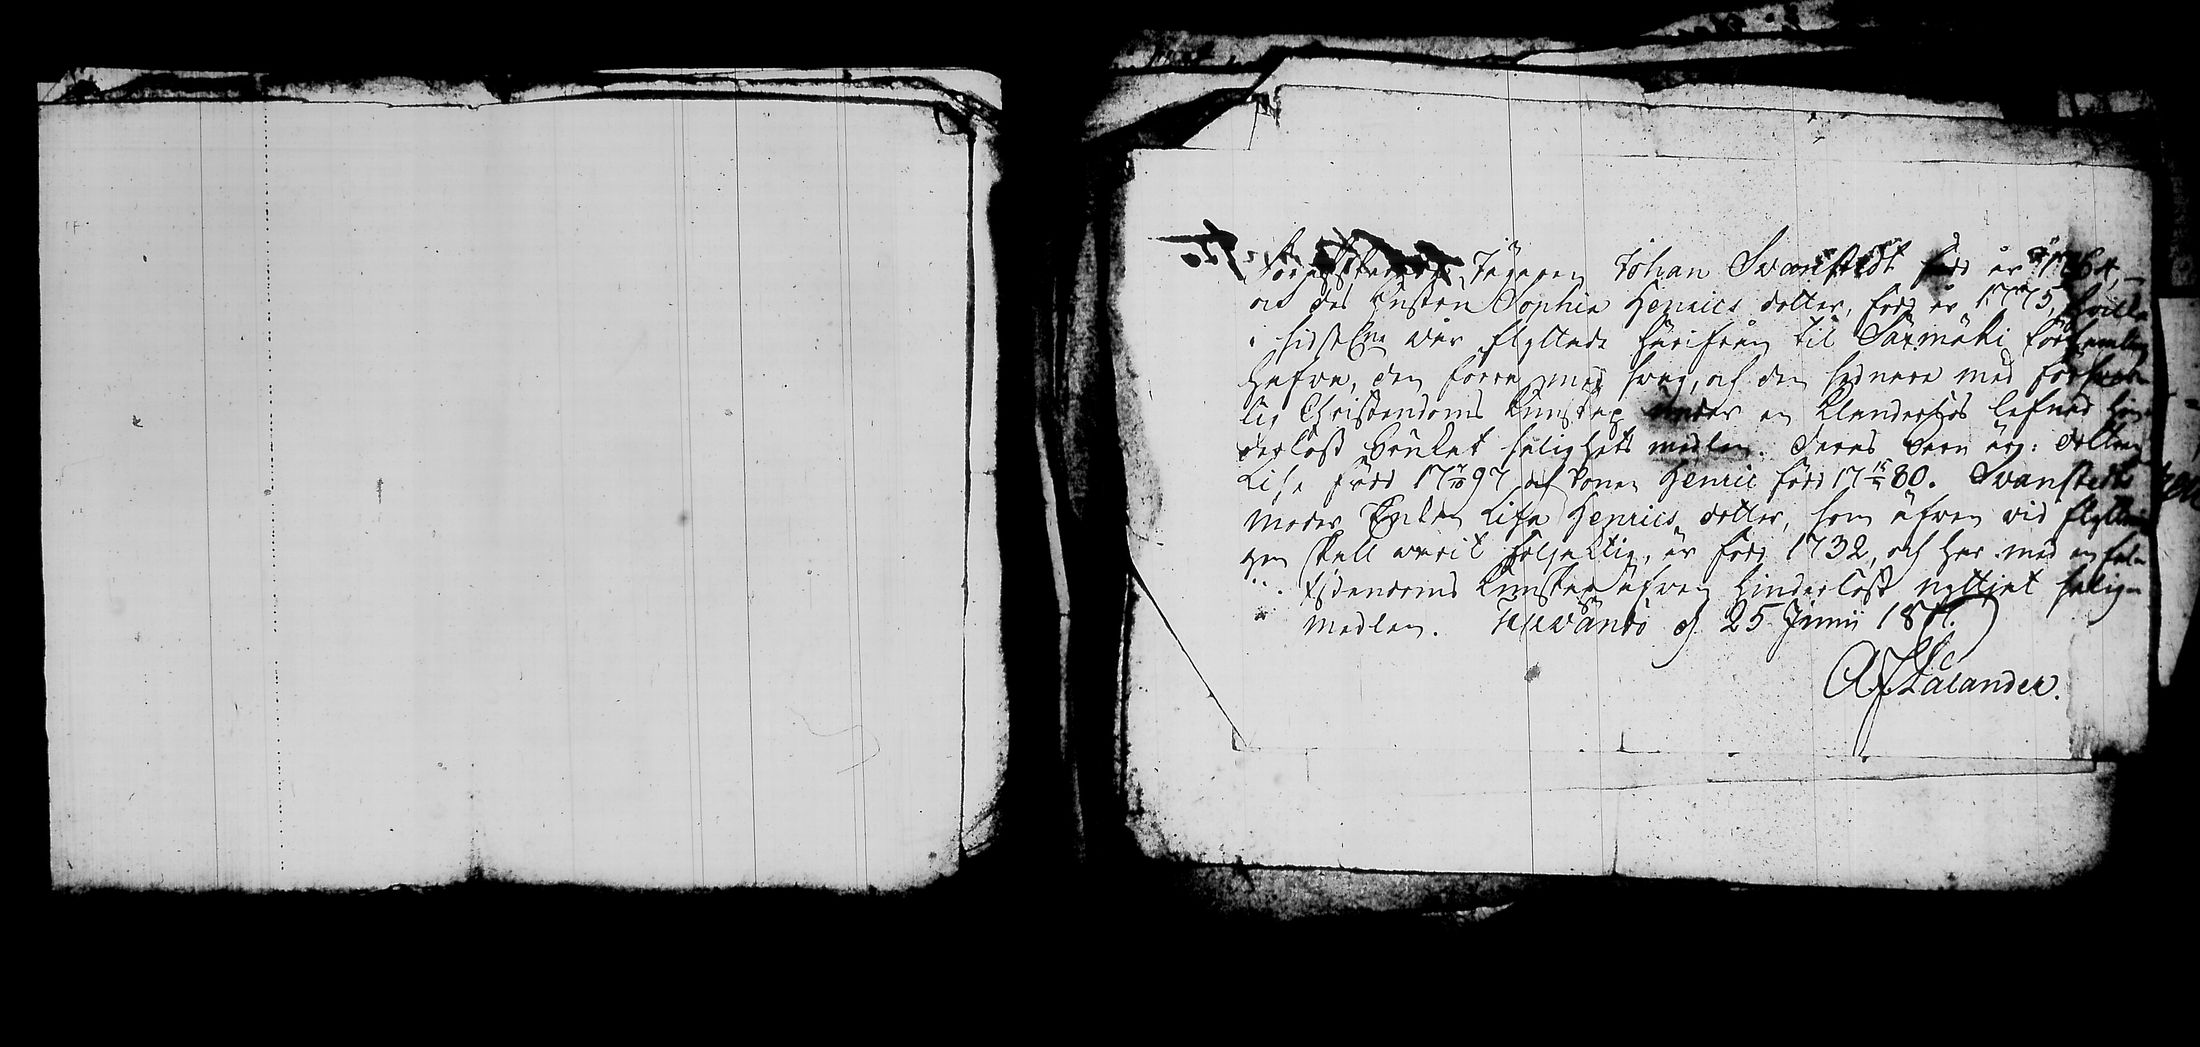 Jägaren Johan Svanstedt född år 1764,
och des hustru Sophia Henrics dotter, född år 1775, hvilka
i sidstl. vår flyttade härifrån til Säxmäki församling
hafva, den förra med svag, och den sednare med försvar-
lig Christendoms kunskap under en klanderlös lefnad hin-
derlöst brukat salighets medlen. Deras barn äro: dottren
Lisa född 1797 och sonen Henric född 1780. Svanstedts
moder Enkan Lisa Henrics dotter, som äfven vid flyttnin-
gen skall varit följaktig, är född 1732, och har med en
kunskap äfven hinderlöst nyttjat salig-
medlen. d. 25 Junii 18
Calander.